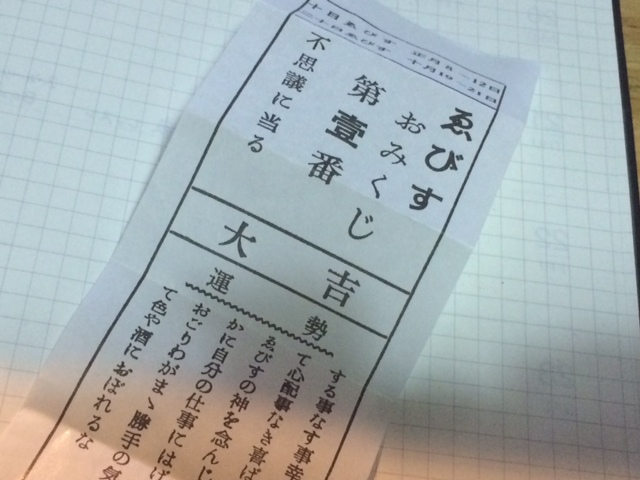 十日ゑびす 正月8―12日
二十日ゑびす 十月19―21日
ゑびす
おみくじ
第壹番
不思議に当る
大吉
運勢
する事なす事幸
て心配事なき喜ば
ゑびすの神を念んじ
かに自分の仕事にはげ
おごりわがまゝ勝手の気
て色や酒におぼれるな